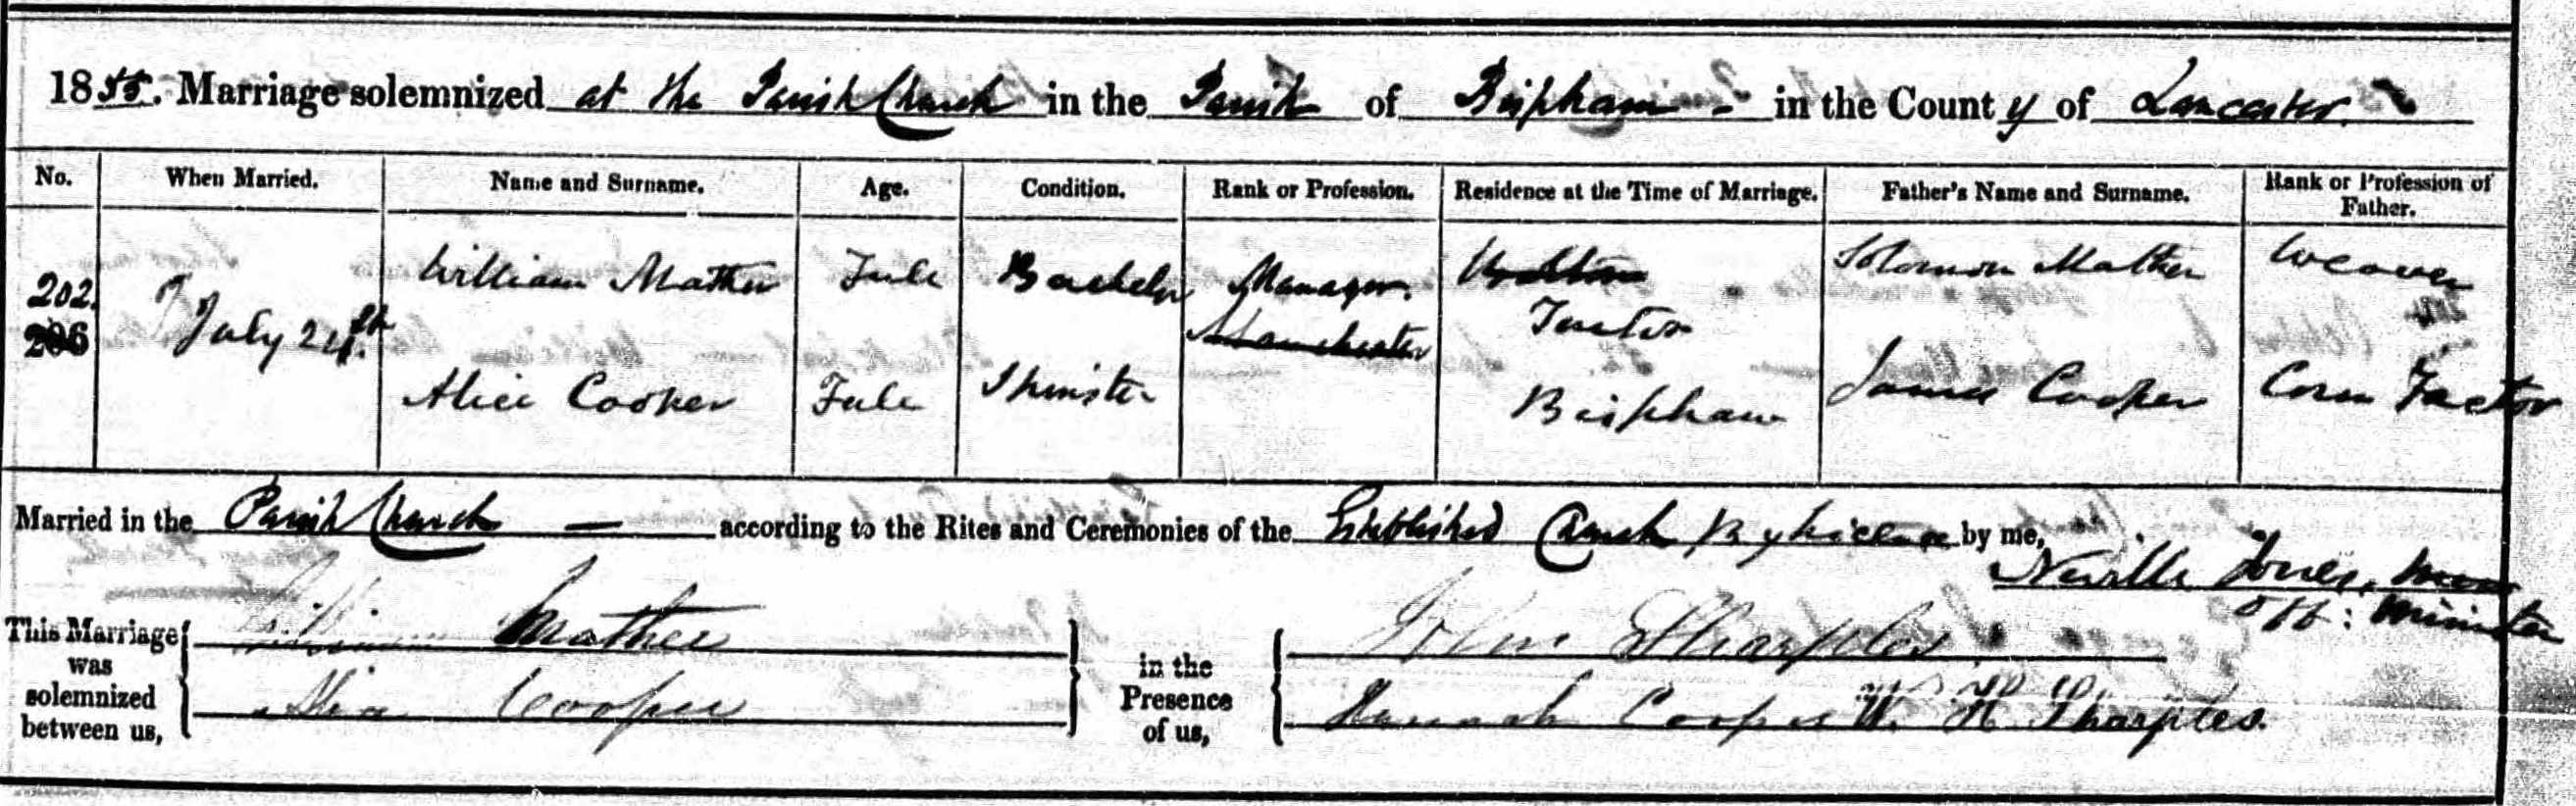 1855. Marriage solemnized at the Parish Church in the Parish of Bispham - in the County of Lancaster.
No. When Married. Name and Surname. Age. Condition. Rank or Profession. Residence at the Time of Marriage. Father's Name and Surname. Rank or Profession of Father.
202. William Mather Full Bachelor Manager. Solomon Mather Weaver
206 July 24th. Manchester
Alice Cooper Full Spinster Bispham James Cooper Corn Factor
Married in the Parish Church — according to the Rites and Ceremonies of the Established Church By license by me,
Neville Jones,
Off: Minister
This Marriage was solemnized between us, William Mather in the Presence of us, John Sharples
Alice Cooper Hannah Cooper W. H. Sharples.